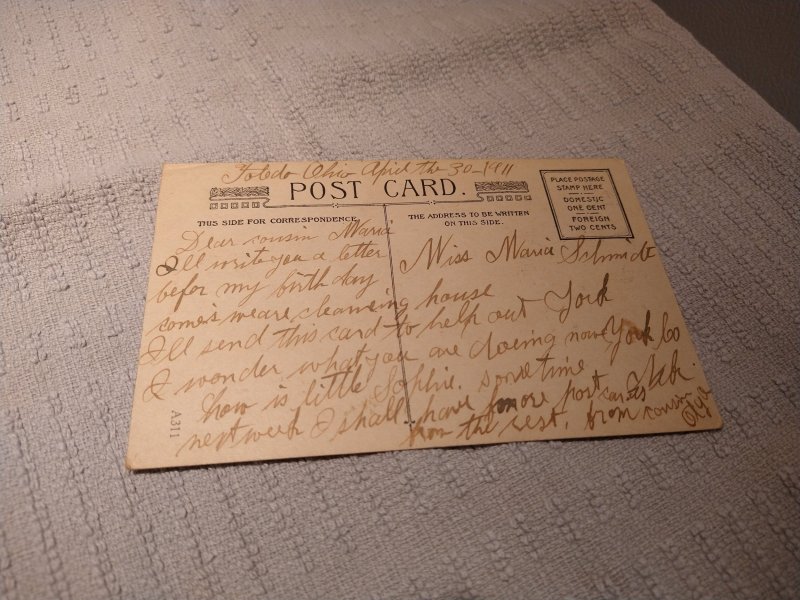 Toledo Ohio April the 30-1911
POST CARD.
THIS SIDE FOR CORRESPONDENCE
THE ADDRESS TO BE WRITTEN
ON THIS SIDE.
PLACE POSTAGE
STAMP HERE
DOMESTIC
ONE CENT
FOREIGN
TWO CENTS
Dear cousin Maria
I'll write you a letter
befor my birthday
comes we are cleansing house
I'll send this card to help out
I wonder what you are doeing now
how is little Sophie. sometime
next week I shall have more post cards
from the rest. from cousin
Olga
Miss Maria Schmidt
York
York Co
Nebr.
A311